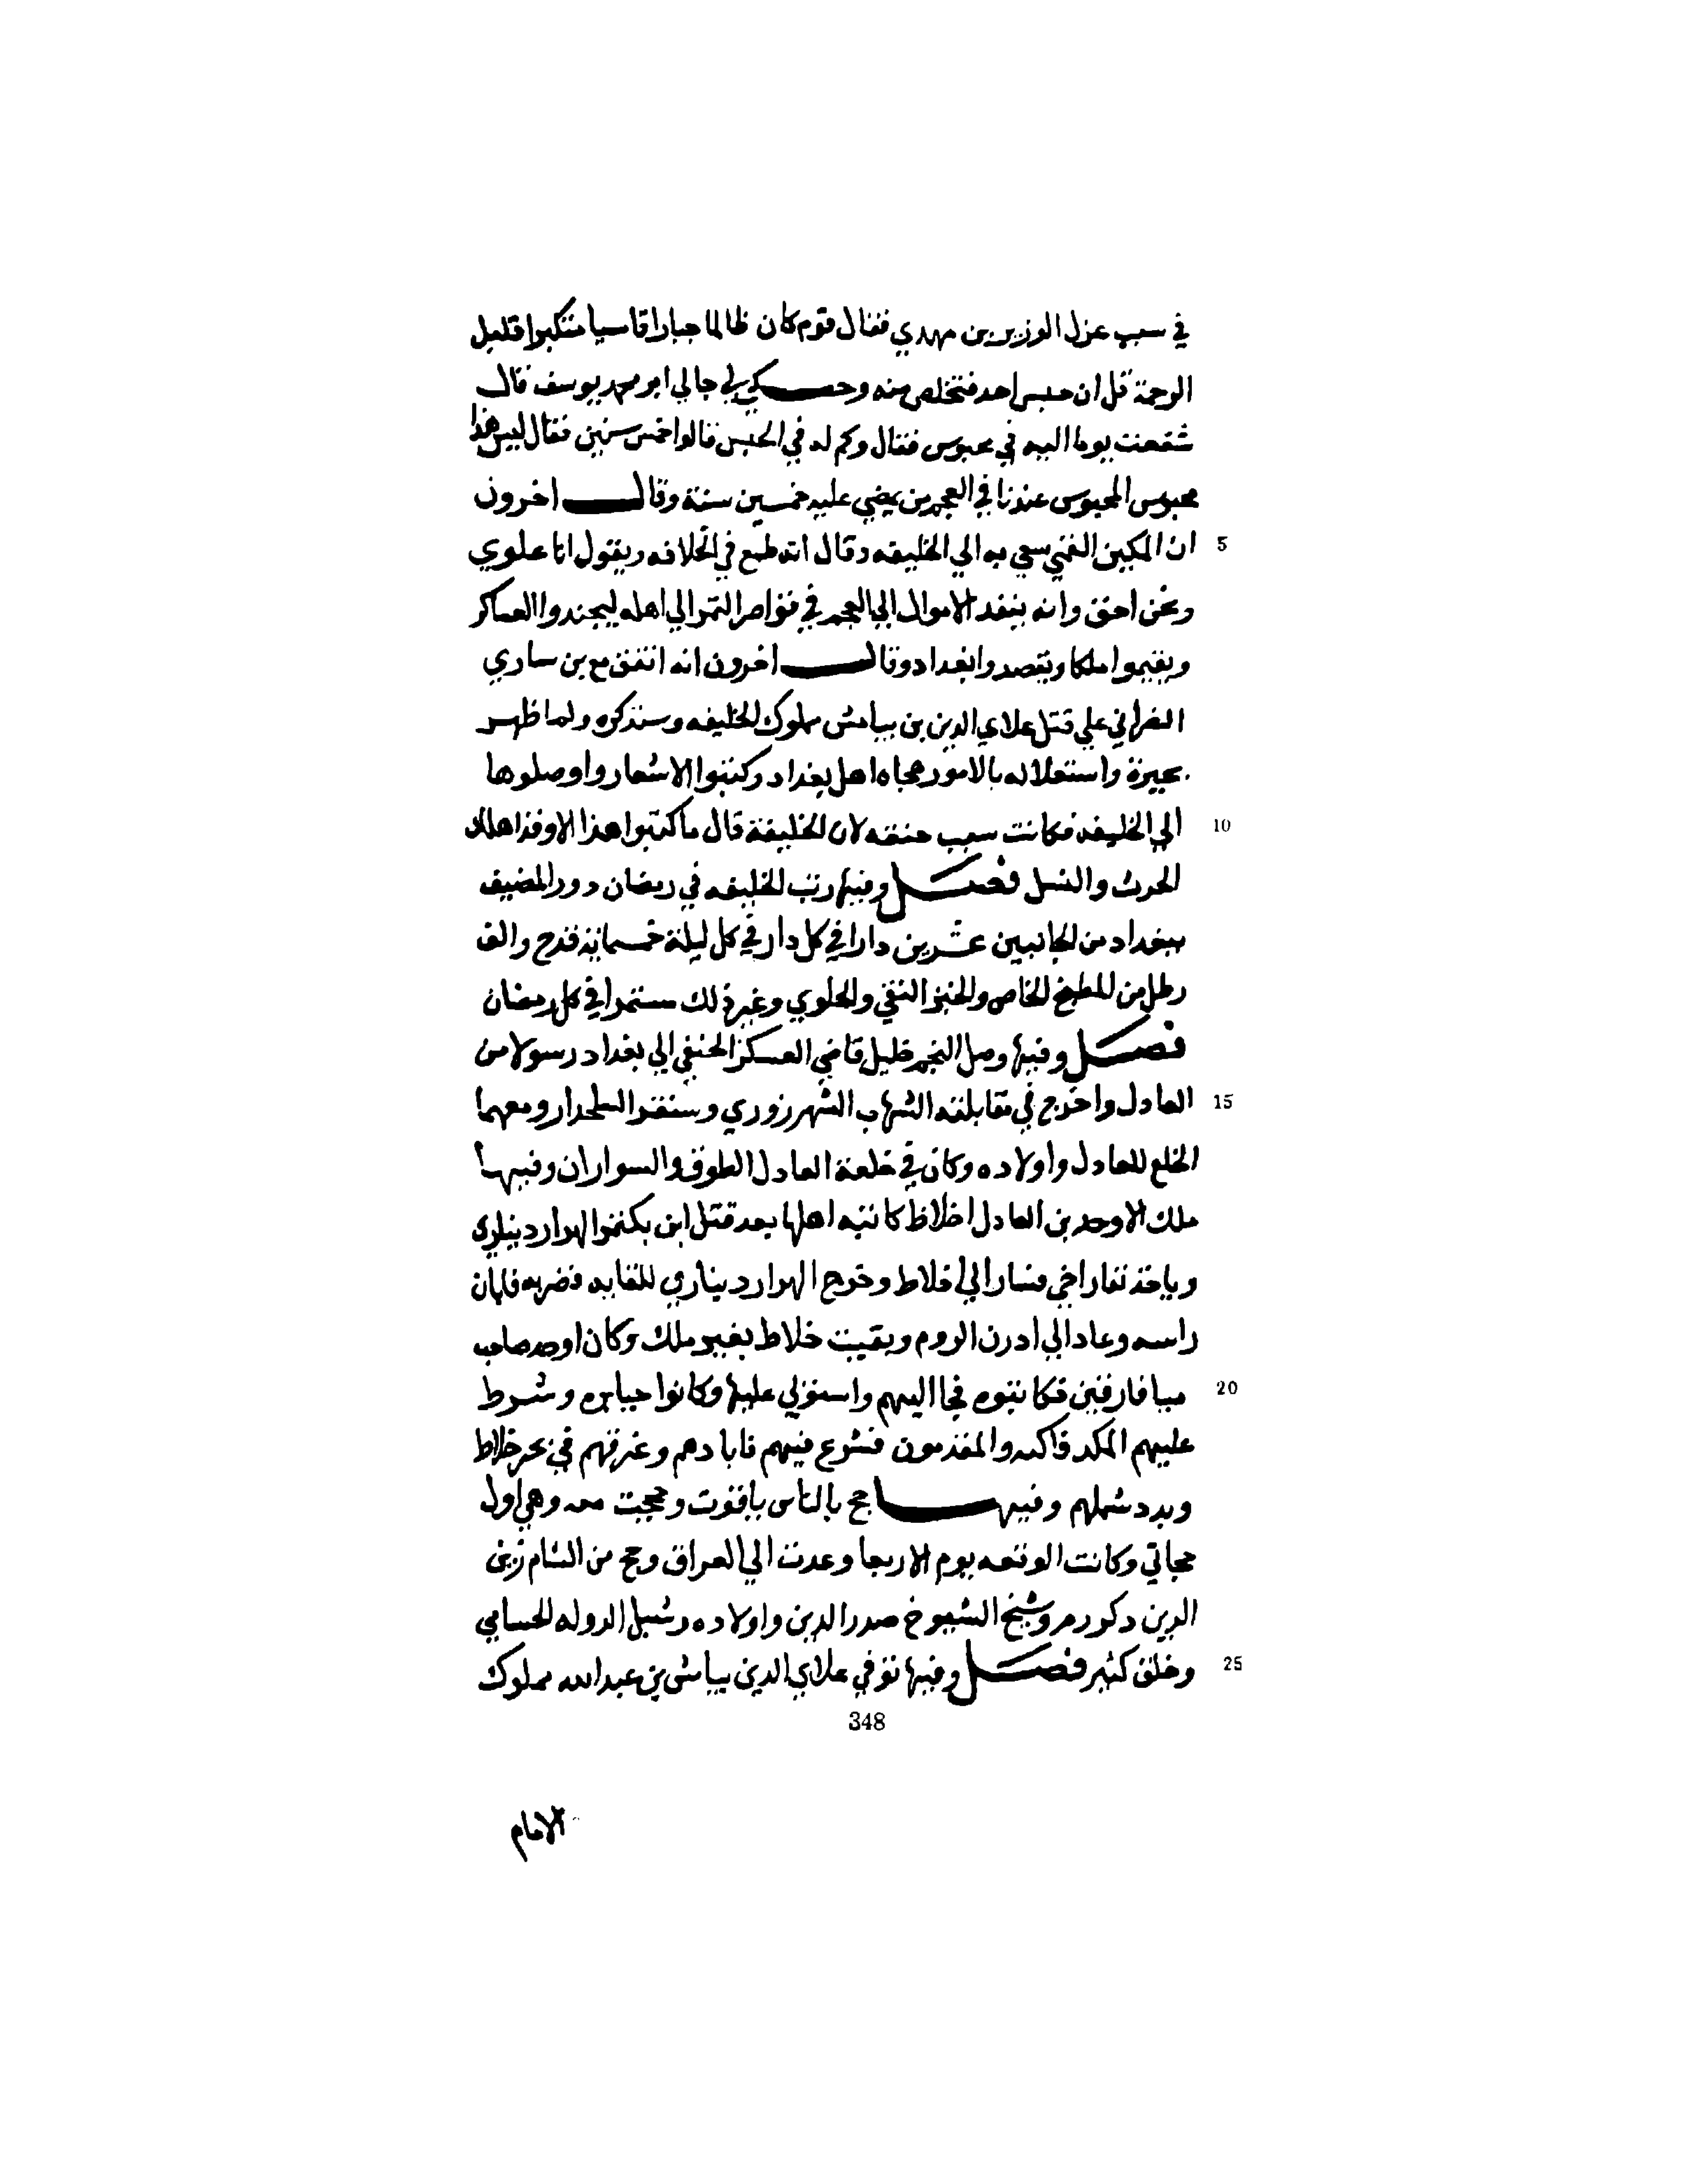 في سبب عزل الوزير بن مهدي فقال قوم كان ظالما جبارا قاسيا متكبرا قليل
الرحمة قل ان حبس احد فتخلص منه وحكي لي جالي ابو محمد يوسف قال
شفعت يوما اليه في محبوس فقال وكم له في الحبس قالوا خمس سنين فقال ليس هذا
محبوس المحبوس عندنا في العجم من يمضي عليه خمسين سنة وقال اخرون
5 ان المكين القمي سعي به الي الخليفه وقال انه طمع في الخلافه ويقول انا علوي
ونحن احق وانه ينفد الاموال الي العجم في قواصر التمر الي اهله ليجندوا العساكر
ويقيموا ملكا ويقصدوا بغداد وقال اخرون انه اتفق مع بن ساري
النصراني علي قتل علاي الدين بن بيامش مملوك الخليفه وسنذكره ولما ظهر
تجبره واستعلاله بالامور هجاه اهل بغداد وكتبوا الاشعار واوصلوها
10 الي الخليفه فكانت سبب حنقه لان الخليفة قال ما كتبوا هذا الا وقد اهلك
الحرث والنسل فصل وفيها رتب الخليفه في رمضان دور المضيف
ببغداد من الجانبين عشرين دارا في كل دار في كل ليلة خمسمائة قدح والف
رطل من المطبخ الخاص والخبز النقي والحلوي وغير ذلك مستمرا في كل رمضان
فصل وفيها وصل النجم خليل قاضي العسكر الحنفي الي بغداد رسولا من
15 العادل واخرج في مقابلته الشهاب الشهرزوري وسنقر السلحدار ومعهما
الخلع للعادل واولاده وكان في خلعة العادل الطوق والسواران وفيها
ملك الاوحد بن العادل اخلاظ كاتبه اهلها بعد قتل ابن بكتمر الهزار ديناري
وياخذ بثار اخي فسار الي خلاط وخرج الهزار ديناري للقايه فضربه فابان
راسه وعاد الي ادرن الروم وبقيت خلاط بغير ملك وكان اوحد صاحب
20 ميافارقين فكاتبوه فجا اليهم واستولي عليها وكانوا جبابره وشرط
عليهم المكد فاكبه والمقدمون فشرع فيهم فابادهم وغرقهم في بحر خلاط
وبدد شملهم وفيها حج بالناس ياقوت وحججت معه وهي اول
حجاتي وكانت الوقعه يوم الاربعا وعدت الي العراق وحج من الشام زين
الدين دكوردمر وشيخ الشيوخ صدر الدين واولاده وشبل الدوله الحسامي
25 وخلق كثير فصل وفيها توفي علاي الدين بيامش بن عبد الله مملوك
348
الامام